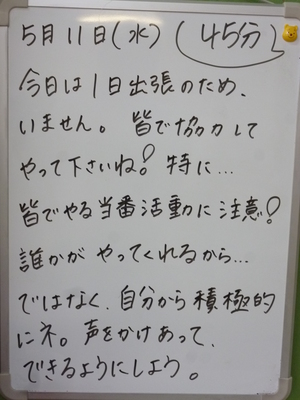 5月11日(水) (45分)
今日は1日出張のため、
いません。皆で協力して
やって下さいね!特に…
皆でやる当番活動に注意!
誰かがやってくれるから…
ではなく、自分から積極的
にネ。声をかけあって、
できるようにしよう。